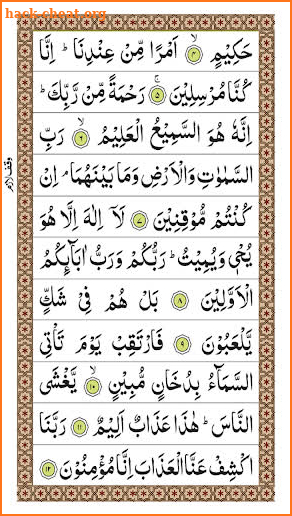 hack-cheat.org
حَكِيْمٍ ۙ﴿۴﴾ اَمْرًا مِّنْ عِنْدِنَا ؕ اِنَّا
كُنَّا مُرْسِلِيْنَ ۚ﴿۵﴾ رَحْمَةً مِّنْ رَّبِّكَ ؕ
اِنَّهٗ هُوَ السَّمِيْعُ الْعَلِيْمُ ۙ﴿۶﴾ رَبِّ
السَّمٰوٰتِ وَالْاَرْضِ وَمَا بَيْنَهُمَا ۘ اِنْ
كُنْتُمْ مُّوْقِنِيْنَ ﴿۷﴾ لَاۤ اِلٰهَ اِلَّا هُوَ
يُحْيٖ وَيُمِيْتُ ؕ رَبُّكُمْ وَرَبُّ اٰبَآئِكُمُ
الْاَوَّلِيْنَ ﴿۸﴾ بَلْ هُمْ فِيْ شَكٍّ
يَّلْعَبُوْنَ ﴿۹﴾ فَارْتَقِبْ يَوْمَ تَاْتِي
السَّمَآءُ بِدُخَانٍ مُّبِيْنٍ ۙ﴿۱۰﴾ يَّغْشَى
النَّاسَ ؕ هٰذَا عَذَابٌ اَلِيْمٌ ﴿۱۱﴾ رَبَّنَا
اكْشِفْ عَنَّا الْعَذَابَ اِنَّا مُؤْمِنُوْنَ ﴿۱۲﴾
وقف لازم
hack-cheat.org